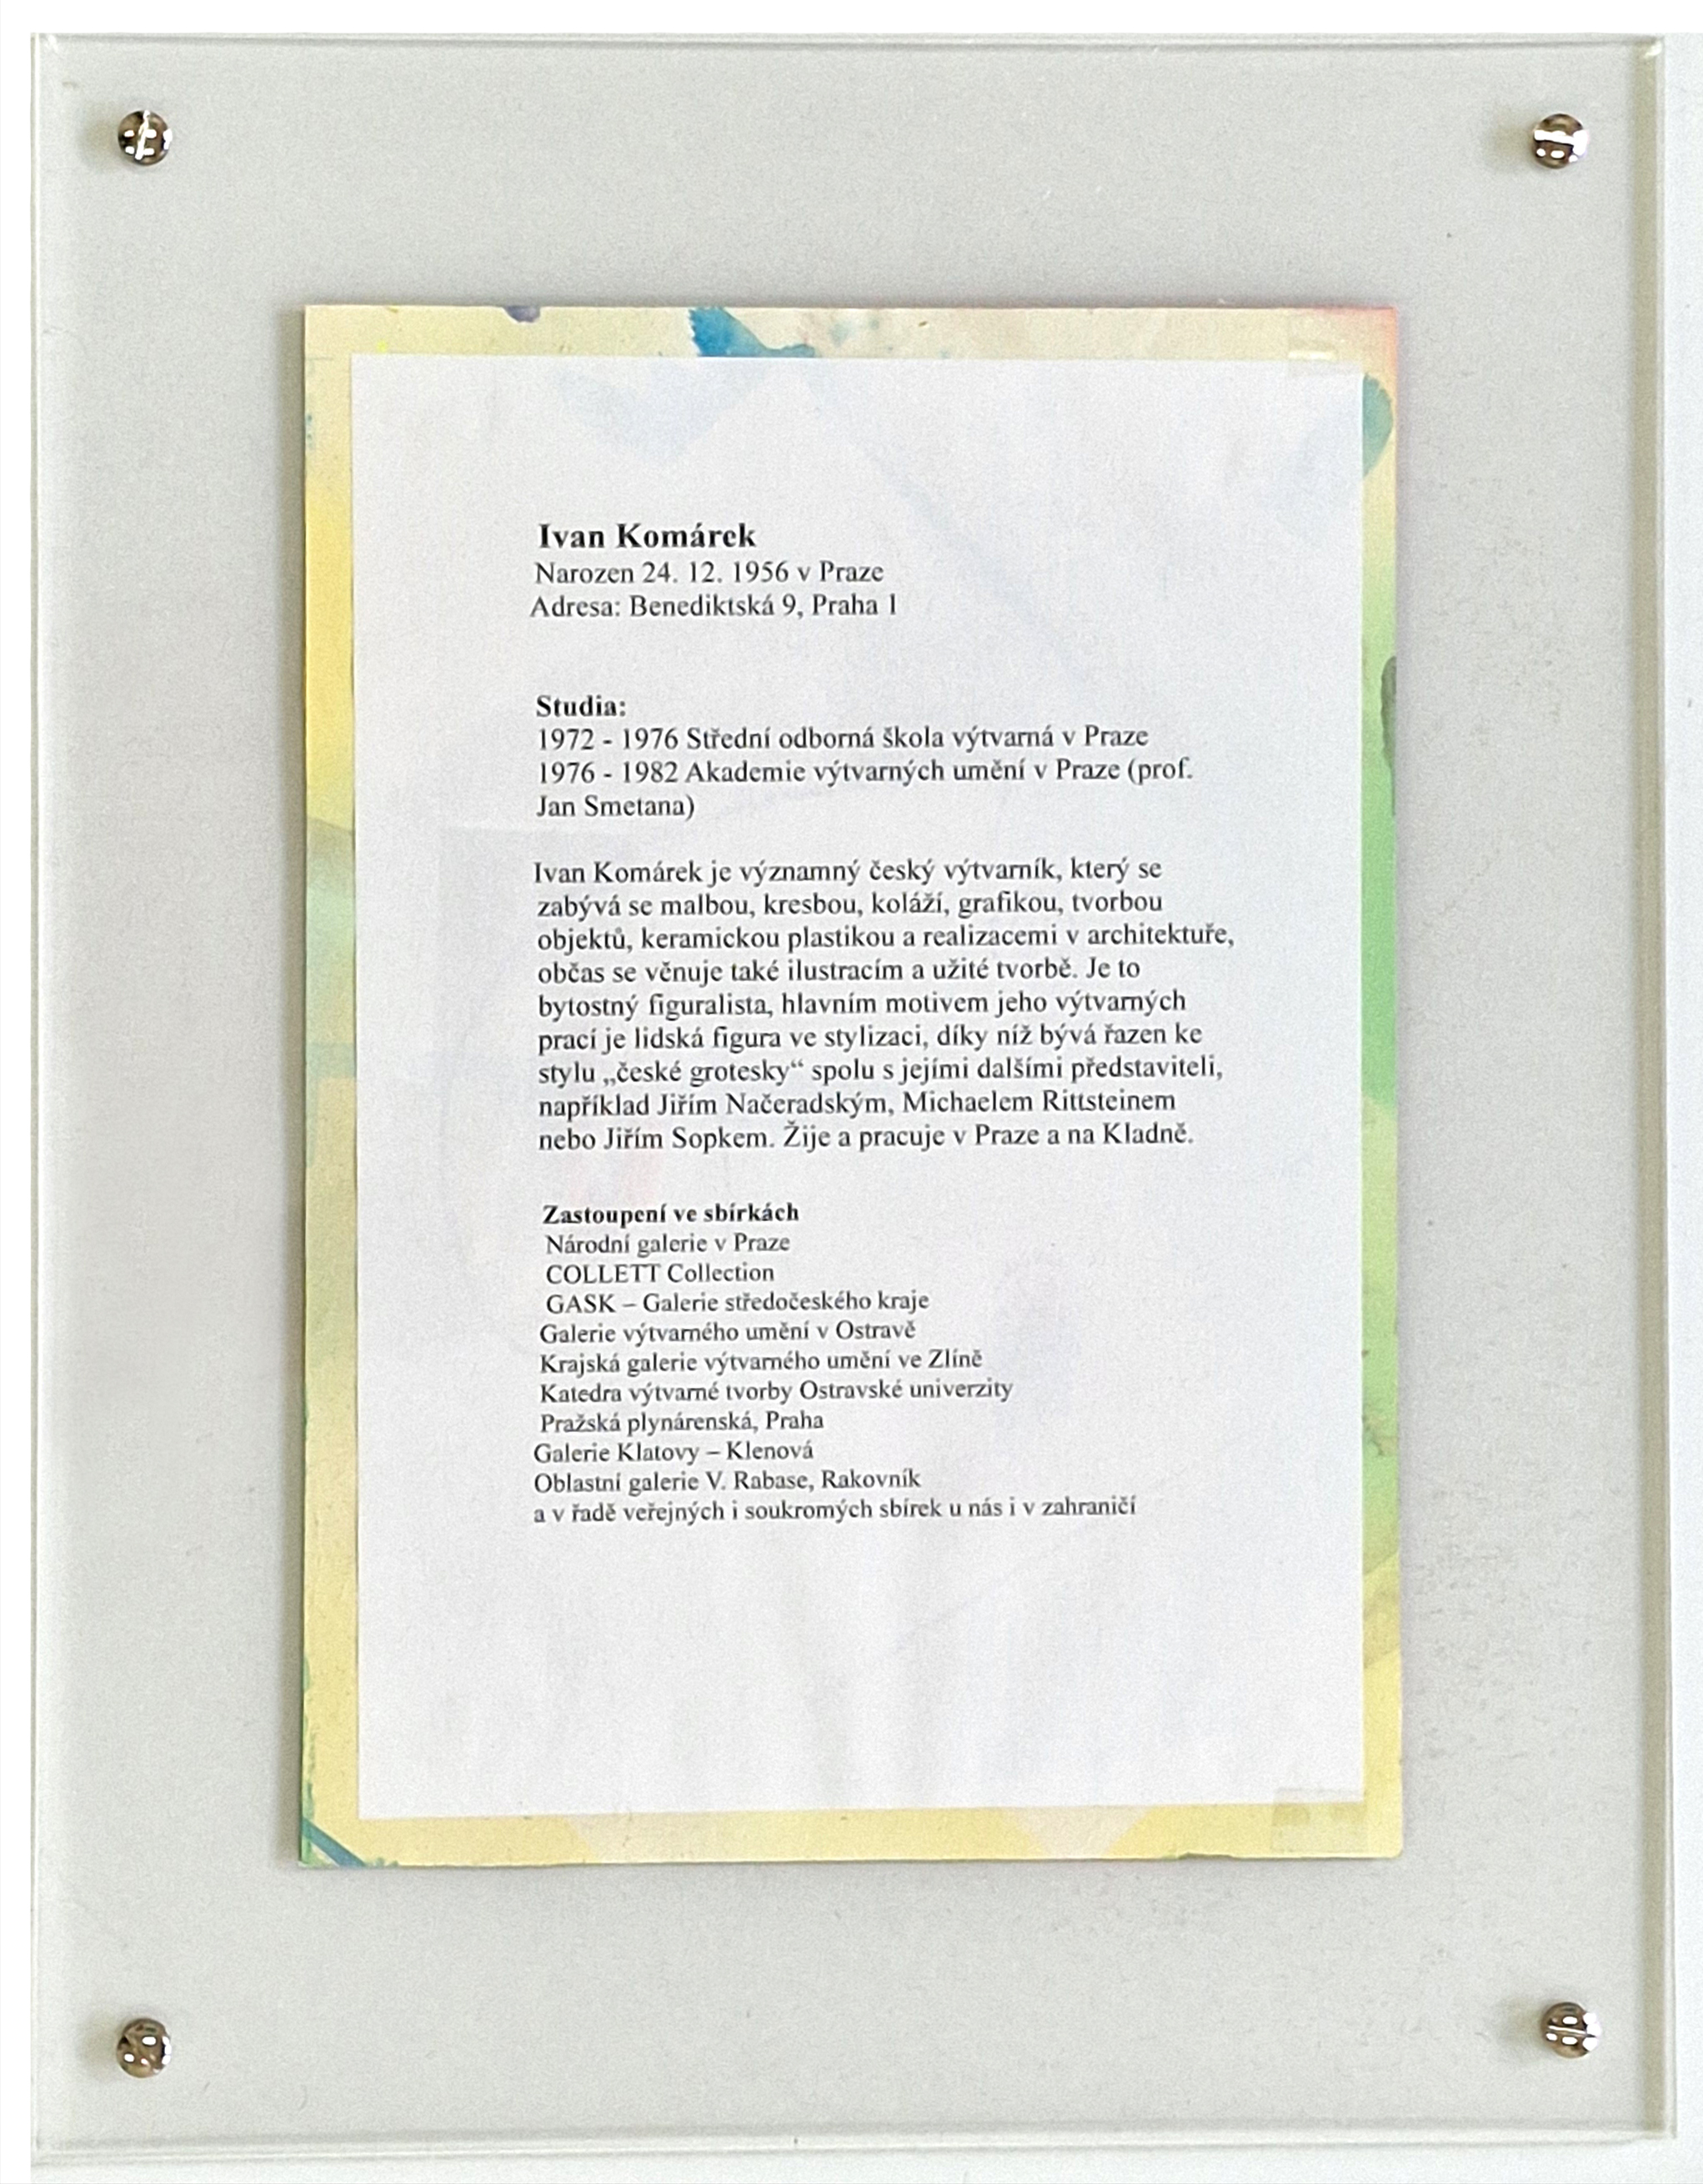 Ivan Komárek
Narozen 24. 12. 1956 v Praze
Adresa: Benediktská 9, Praha 1
Studia:
1972 - 1976 Střední odborná škola výtvarná v Praze
1976 - 1982 Akademie výtvarných umění v Praze (prof.
Jan Smetana)
Ivan Komárek je významný český výtvarník, který se
zabývá se malbou, kresbou, koláží, grafikou, tvorbou
objektů, keramickou plastikou a realizacemi v architektuře,
občas se věnuje také ilustracím a užité tvorbě. Je to
bytostný figuralista, hlavním motivem jeho výtvarných
prací je lidská figura ve stylizaci, díky níž bývá řazen ke
stylu „české grotesky“ spolu s jejími dalšími představiteli,
například Jiřím Načeradským, Michaelem Rittsteinem
nebo Jiřím Sopkem. Žije a pracuje v Praze a na Kladně.
Zastoupení ve sbírkách
Národní galerie v Praze
COLLETT Collection
GASK – Galerie středočeského kraje
Galerie výtvarného umění v Ostravě
Krajská galerie výtvarného umění ve Zlíně
Katedra výtvarné tvorby Ostravské univerzity
Pražská plynárenská, Praha
Galerie Klatovy – Klenová
Oblastní galerie V. Rabase, Rakovník
a v řadě veřejných i soukromých sbírek u nás i v zahraničí